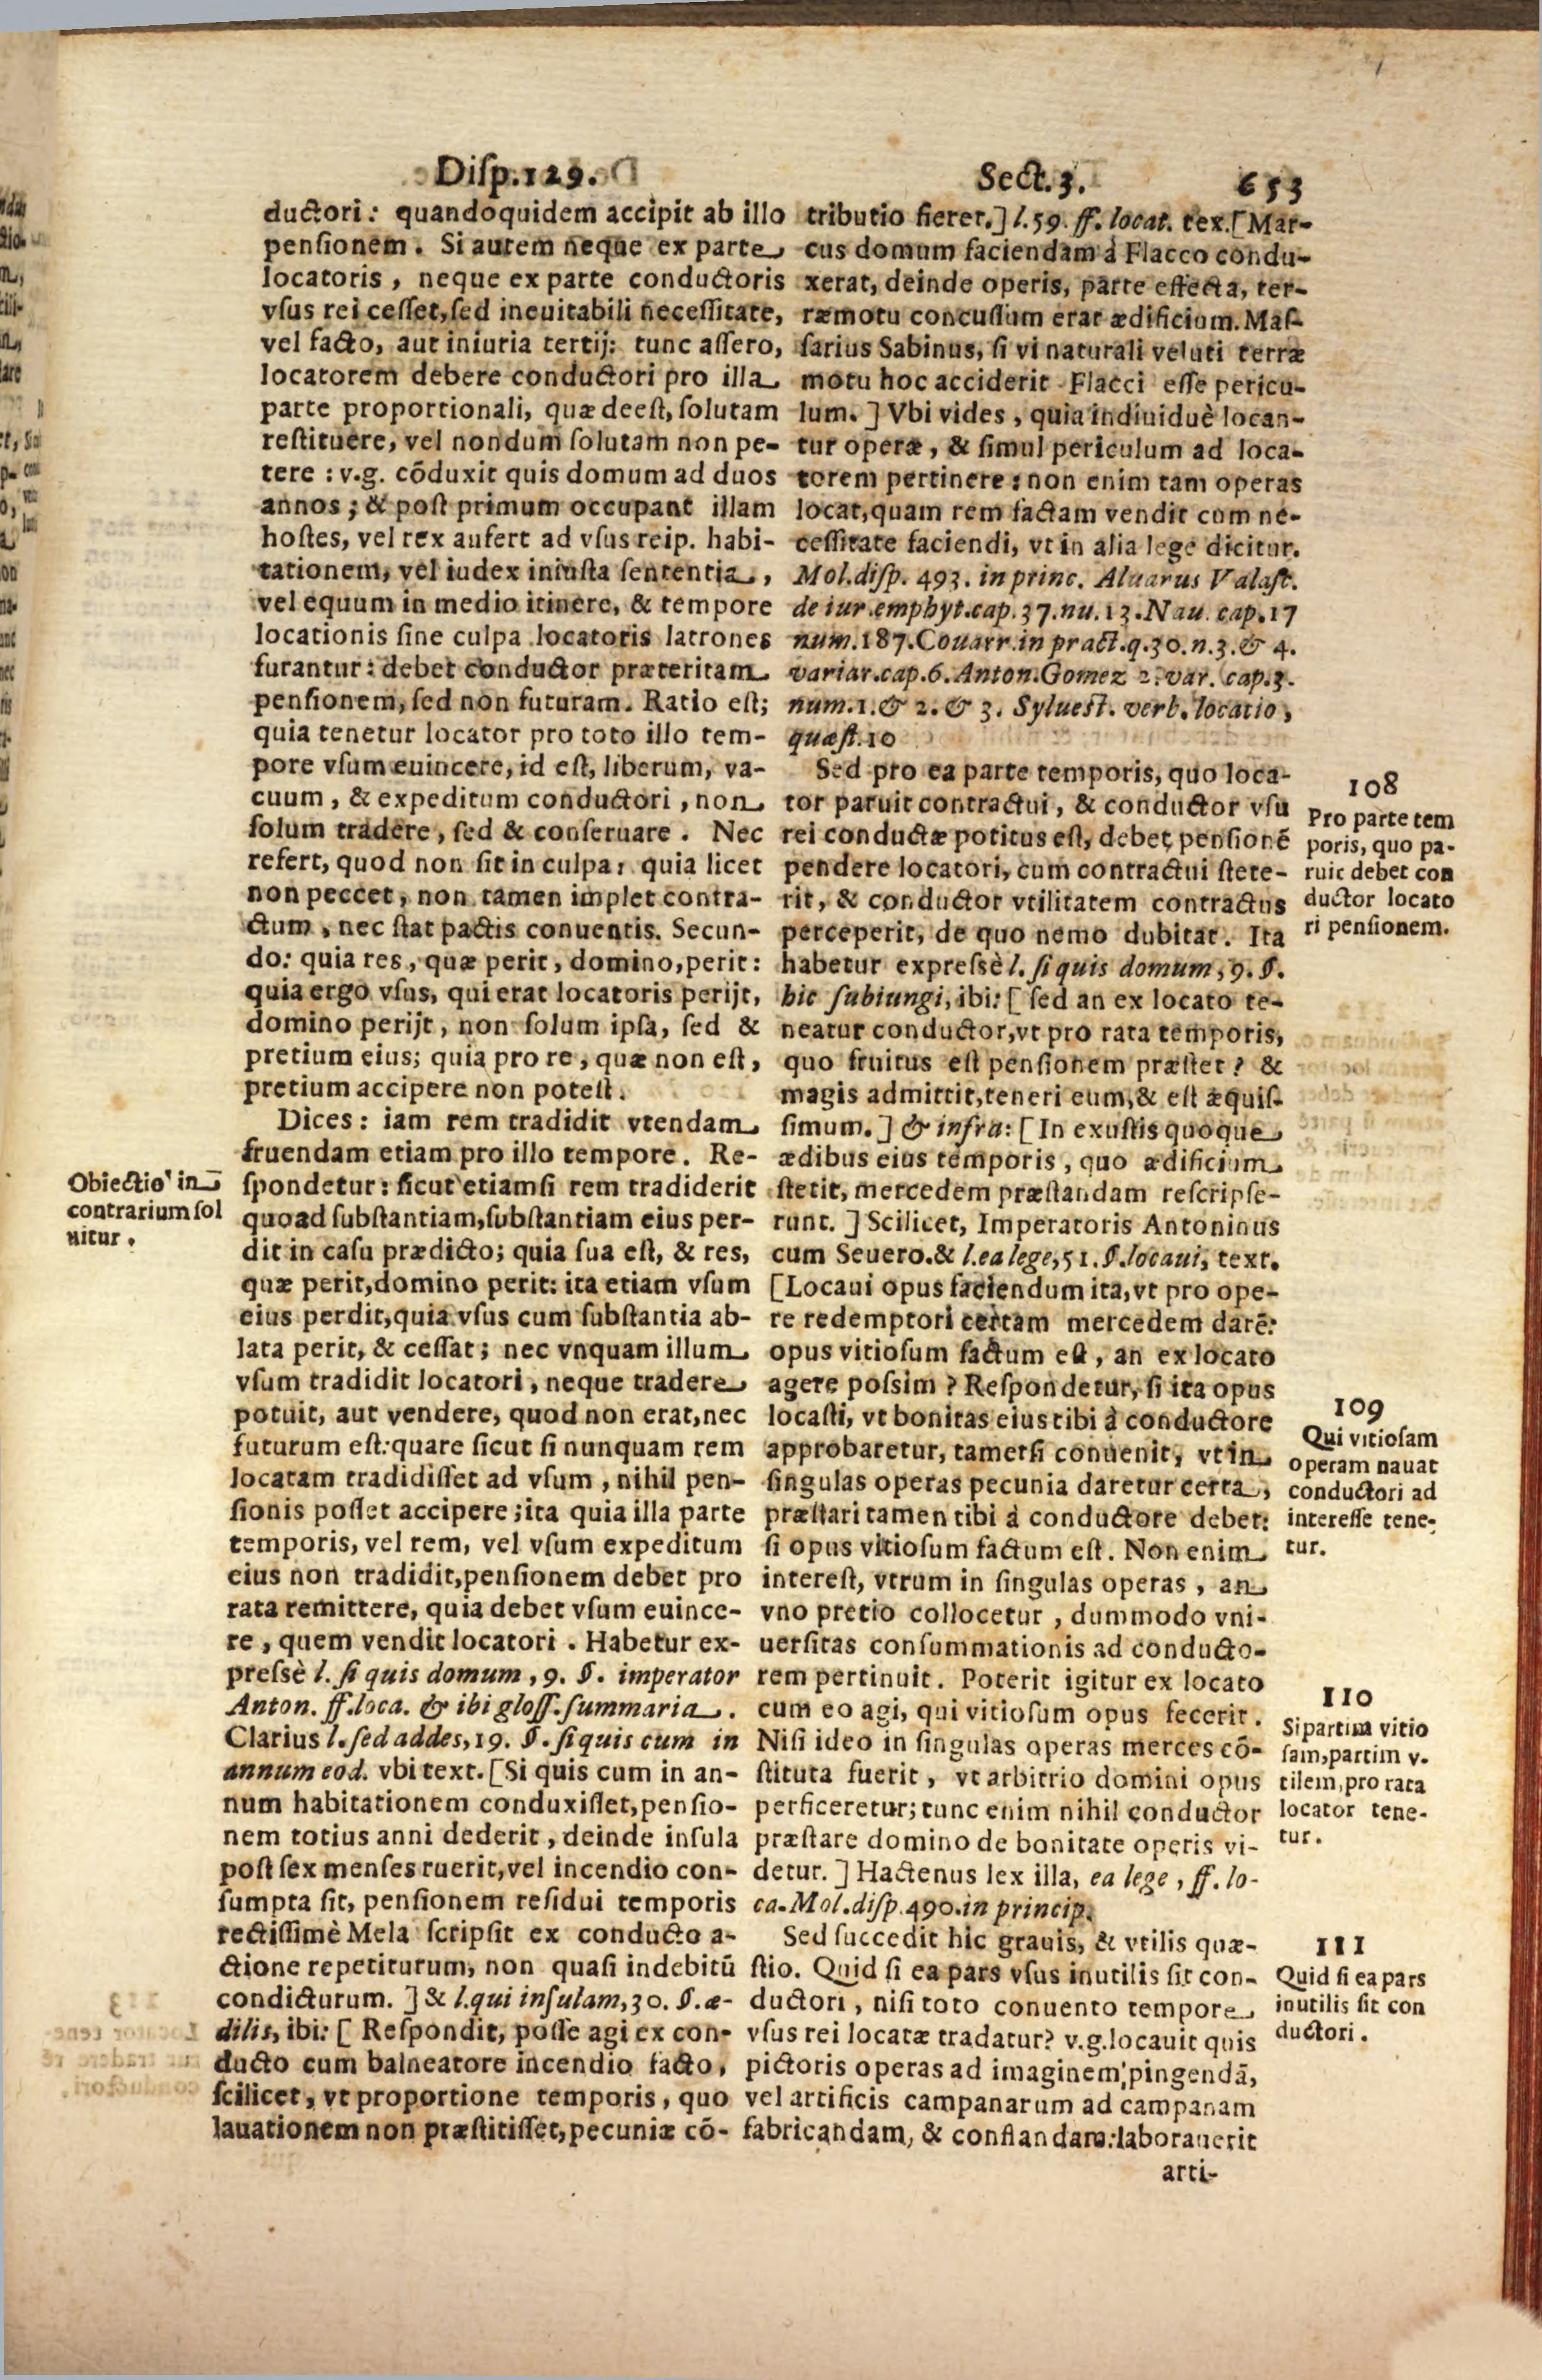 Disp.129. Sect.3. 653
ductori: quandoquidem accipit ab illo
pensionem. Si autem neque ex parte
locatoris, neque ex parte conductoris
vsus rei cesset, sed ineuitabili necessitate,
vel facto, aut iniuria tertij: tunc assero,
locatorem debere conductori pro illa
parte proportionali, quæ deest, solutam
restituere, vel nondum solutam non pe-
tere: v.g. cōduxit quis domum ad duos
annos; & post primum occupant illam
hostes, vel rex aufert ad vsus reip. habi-
tationem, vel iudex iniusta sententia,
vel equum in medio itinere, & tempore
locationis sine culpa locatoris latrones
furantur: debet conductor præteritam
pensionem, sed non futuram. Ratio est;
quia tenetur locator pro toto illo tem-
pore vsum euincere, id est, liberum, va-
cuum, & expeditum conductori, non
solum tradere, sed & conseruare. Nec
refert, quod non sit in culpa: quia licet
non peccet, non tamen implet contra-
ctum, nec stat pactis conuentis. Secun-
do: quia res, quæ perit, domino, perit:
quia ergo vsus, qui erat locatoris perijt,
domino perijt, non solum ipsa, sed &
pretium eius; quia pro re, quæ non est,
pretium accipere non potest.
Dices: iam rem tradidit vtendam
fruendam etiam pro illo tempore. Re-
spondetur: sicut etiamsi rem tradiderit
quoad substantiam, substantiam eius per-
dit in casu prædicto; quia sua est, & res,
quæ perit, domino perit: ita etiam vsum
eius perdit, quia vsus cum substantia ab-
lata perit, & cessat; nec vnquam illum
vsum tradidit locatori, neque tradere
potuit, aut vendere, quod non erat, nec
futurum est: quare sicut si nunquam rem
locatam tradidisset ad vsum, nihil pen-
sionis posset accipere; ita quia illa parte
temporis, vel rem, vel vsum expeditum
eius non tradidit, pensionem debet pro
rata remittere, quia debet vsum euince-
re, quem vendit locatori. Habetur ex-
pressè l. si quis domum, 9. §. imperator
Anton. ff. loca. & ibi gloss. summaria.
Clarius l. sed addes, 19. §. si quis cum in
annum eod. vbi text. [Si quis cum in an-
num habitationem conduxisset, pensio-
nem totius anni dederit, deinde insula
post sex menses ruerit, vel incendio con-
sumpta sit, pensionem residui temporis
rectissimè Mela scripsit ex conducto a-
ctione repetiturum, non quasi indebitū
condicturum.] & l. qui insulam, 30. §. æ-
dilis, ibi: [Respondit, posse agi ex con-
ducto cum balneatore incendio facto,
scilicet, vt proportione temporis, quo
lauationem non præstitisset, pecuniæ cō-
Obiectio in
contrarium sol
uitur.
tributio fieret.] l.59. ff. locat. tex. [Mar-
cus domum faciendam à Flacco condu-
xerat, deinde operis, parte effecta, ter-
ræmotu concussum erat ædificium. Mas-
sarius Sabinus, si vi naturali veluti terræ
motu hoc acciderit Flacci esse pericu-
lum.] Vbi vides, quia indiuiduè locan-
tur operæ, & simul periculum ad loca-
torem pertinere: non enim tam operas
locat, quam rem factam vendit cum ne-
cessitate faciendi, vt in alia lege dicitur.
Mol. disp. 493. in princ. Aluarus Valast.
de iur. emphyt. cap. 37. nu. 13. Nau. cap. 17
num. 187. Couarr. in pract. q. 30. n. 3. & 4.
variar. cap. 6. Anton. Gomez 2. var. cap. 3.
num. 1. & 2. & 3. Syluest. verb. locatio,
quæst. 10
Sed pro ea parte temporis, quo loca-
tor paruit contractui, & conductor vsu
rei conductæ potitus est, debet pensionē
pendere locatori, cum contractui stete-
rit, & conductor vtilitatem contractus
perceperit, de quo nemo dubitat. Ita
habetur expressè l. si quis domum, 9. §.
hic subiungi, ibi: [sed an ex locato te-
neatur conductor, vt pro rata temporis,
quo fruitus est pensionem præstet? &
magis admittit, teneri eum, & est æquis-
simum.] & infra: [In exustis quoque
ædibus eius temporis, quo ædificium
stetit, mercedem præstandam rescripse-
runt.] Scilicet, Imperatoris Antoninus
cum Seuero. & l. ea lege, 51. §. locaui, text.
[Locaui opus faciendum ita, vt pro ope-
re redemptori certam mercedem darē:
opus vitiosum factum est, an ex locato
agere possim? Respondetur, si ita opus
locasti, vt bonitas eius tibi à conductore
approbaretur, tametsi conuenit, vt in
singulas operas pecunia daretur certa,
præstari tamen tibi à conductore debet:
si opus vitiosum factum est. Non enim
interest, vtrum in singulas operas, an
vno pretio collocetur, dummodo vni-
uersitas consummationis ad conducto-
rem pertinuit. Poterit igitur ex locato
cum eo agi, qui vitiosum opus fecerit.
Nisi ideo in singulas operas merces cō-
stituta fuerit, vt arbitrio domini opus
perficeretur; tunc enim nihil conductor
præstare domino de bonitate operis vi-
detur.] Hactenus lex illa, ea lege, ff. lo-
ca. Mol. disp. 490. in princip.
Sed succedit hic grauis, & vtilis quæ-
stio. Quid si ea pars vsus inutilis sit con-
ductori, nisi toto conuento tempore
vsus rei locatæ tradatur? v.g. locauit quis
pictoris operas ad imaginem pingendā,
vel artificis campanarum ad campanam
fabricandam, & conflandam: laborauerit
arti-
108
Pro parte tem
poris, quo pa-
ruit debet con
ductor locato
ri pensionem.
109
Qui vitiosam
operam nauat
conductori ad
interesse tene-
tur.
110
Si partim vitio
sam, partim v-
tilem, pro rata
locator tene-
tur.
111
Quid si ea pars
inutilis sit con
ductori.